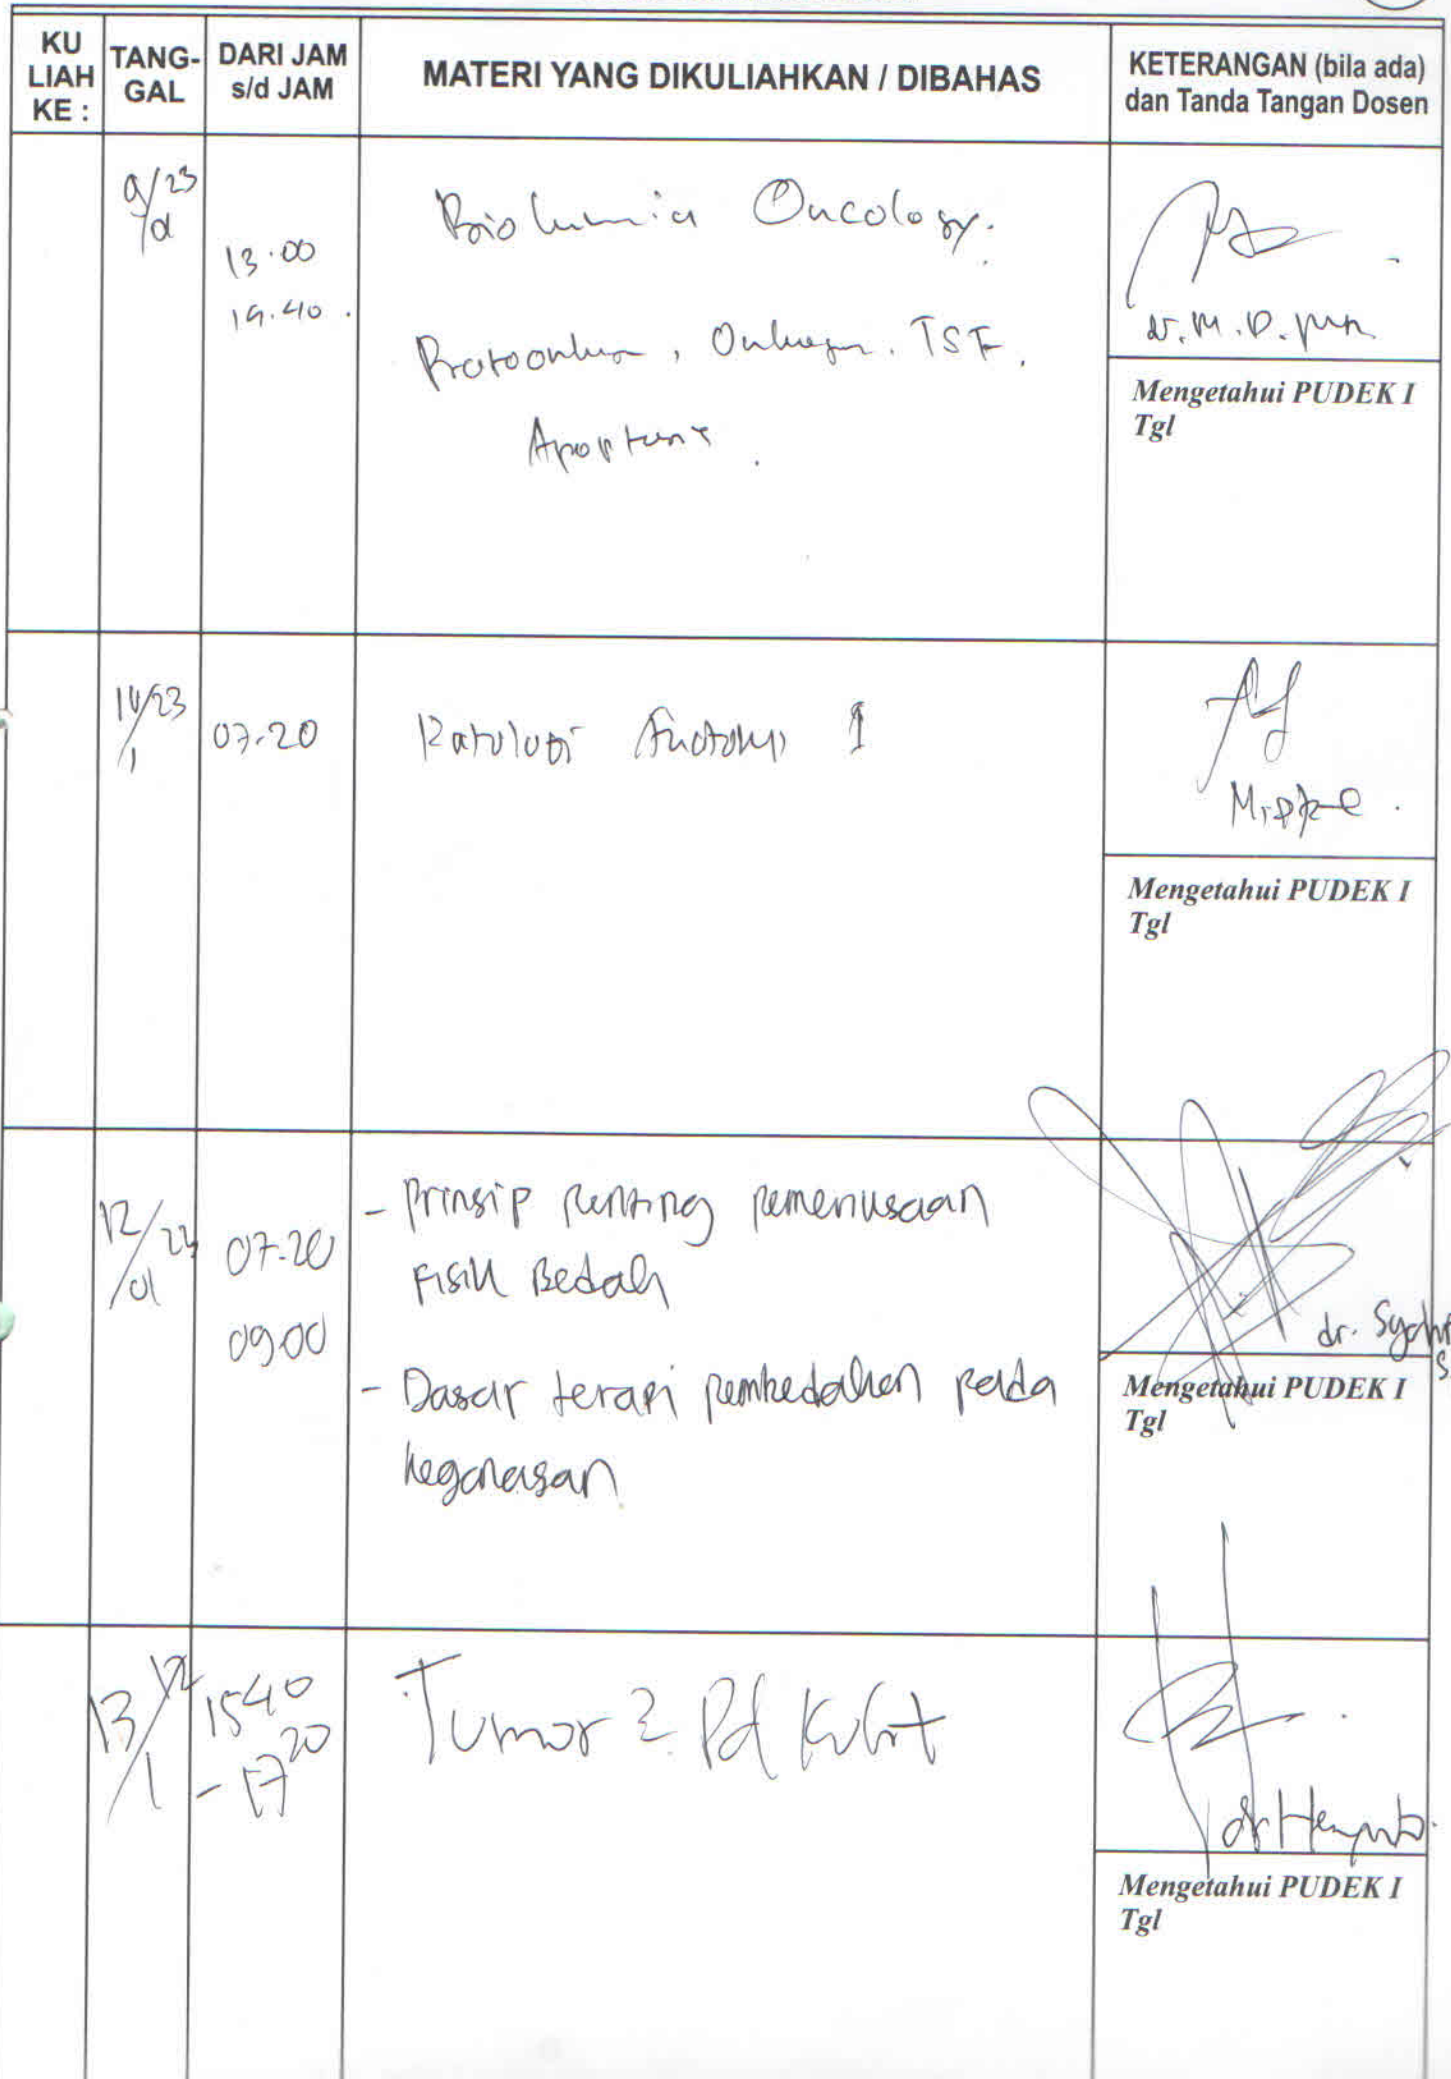 KU
LIAH
KE :
TANG-
GAL
DARI JAM
s/d JAM
MATERI YANG DIKULIAHKAN / DIBAHAS
KETERANGAN (bila ada)
dan Tanda Tangan Dosen
13.00
Biokimia Oncology.
Protoonkogen, Onkogen. TSF.
Apoptosis.
Mengetahui PUDEK I
Tgl
07.20
Patologi Anatomi I
Mengetahui PUDEK I
Tgl
12/
01
07.20
09.00
- Prinsip penting pemeriksaan
Fisik Bedah
- Dasar terapi pembedahan pada
keganasan
dr.
Mengetahui PUDEK I
Tgl
13/
1
1540
- 1720
Tumor 2 Pd Kulit
dr
Mengetahui PUDEK I
Tgl